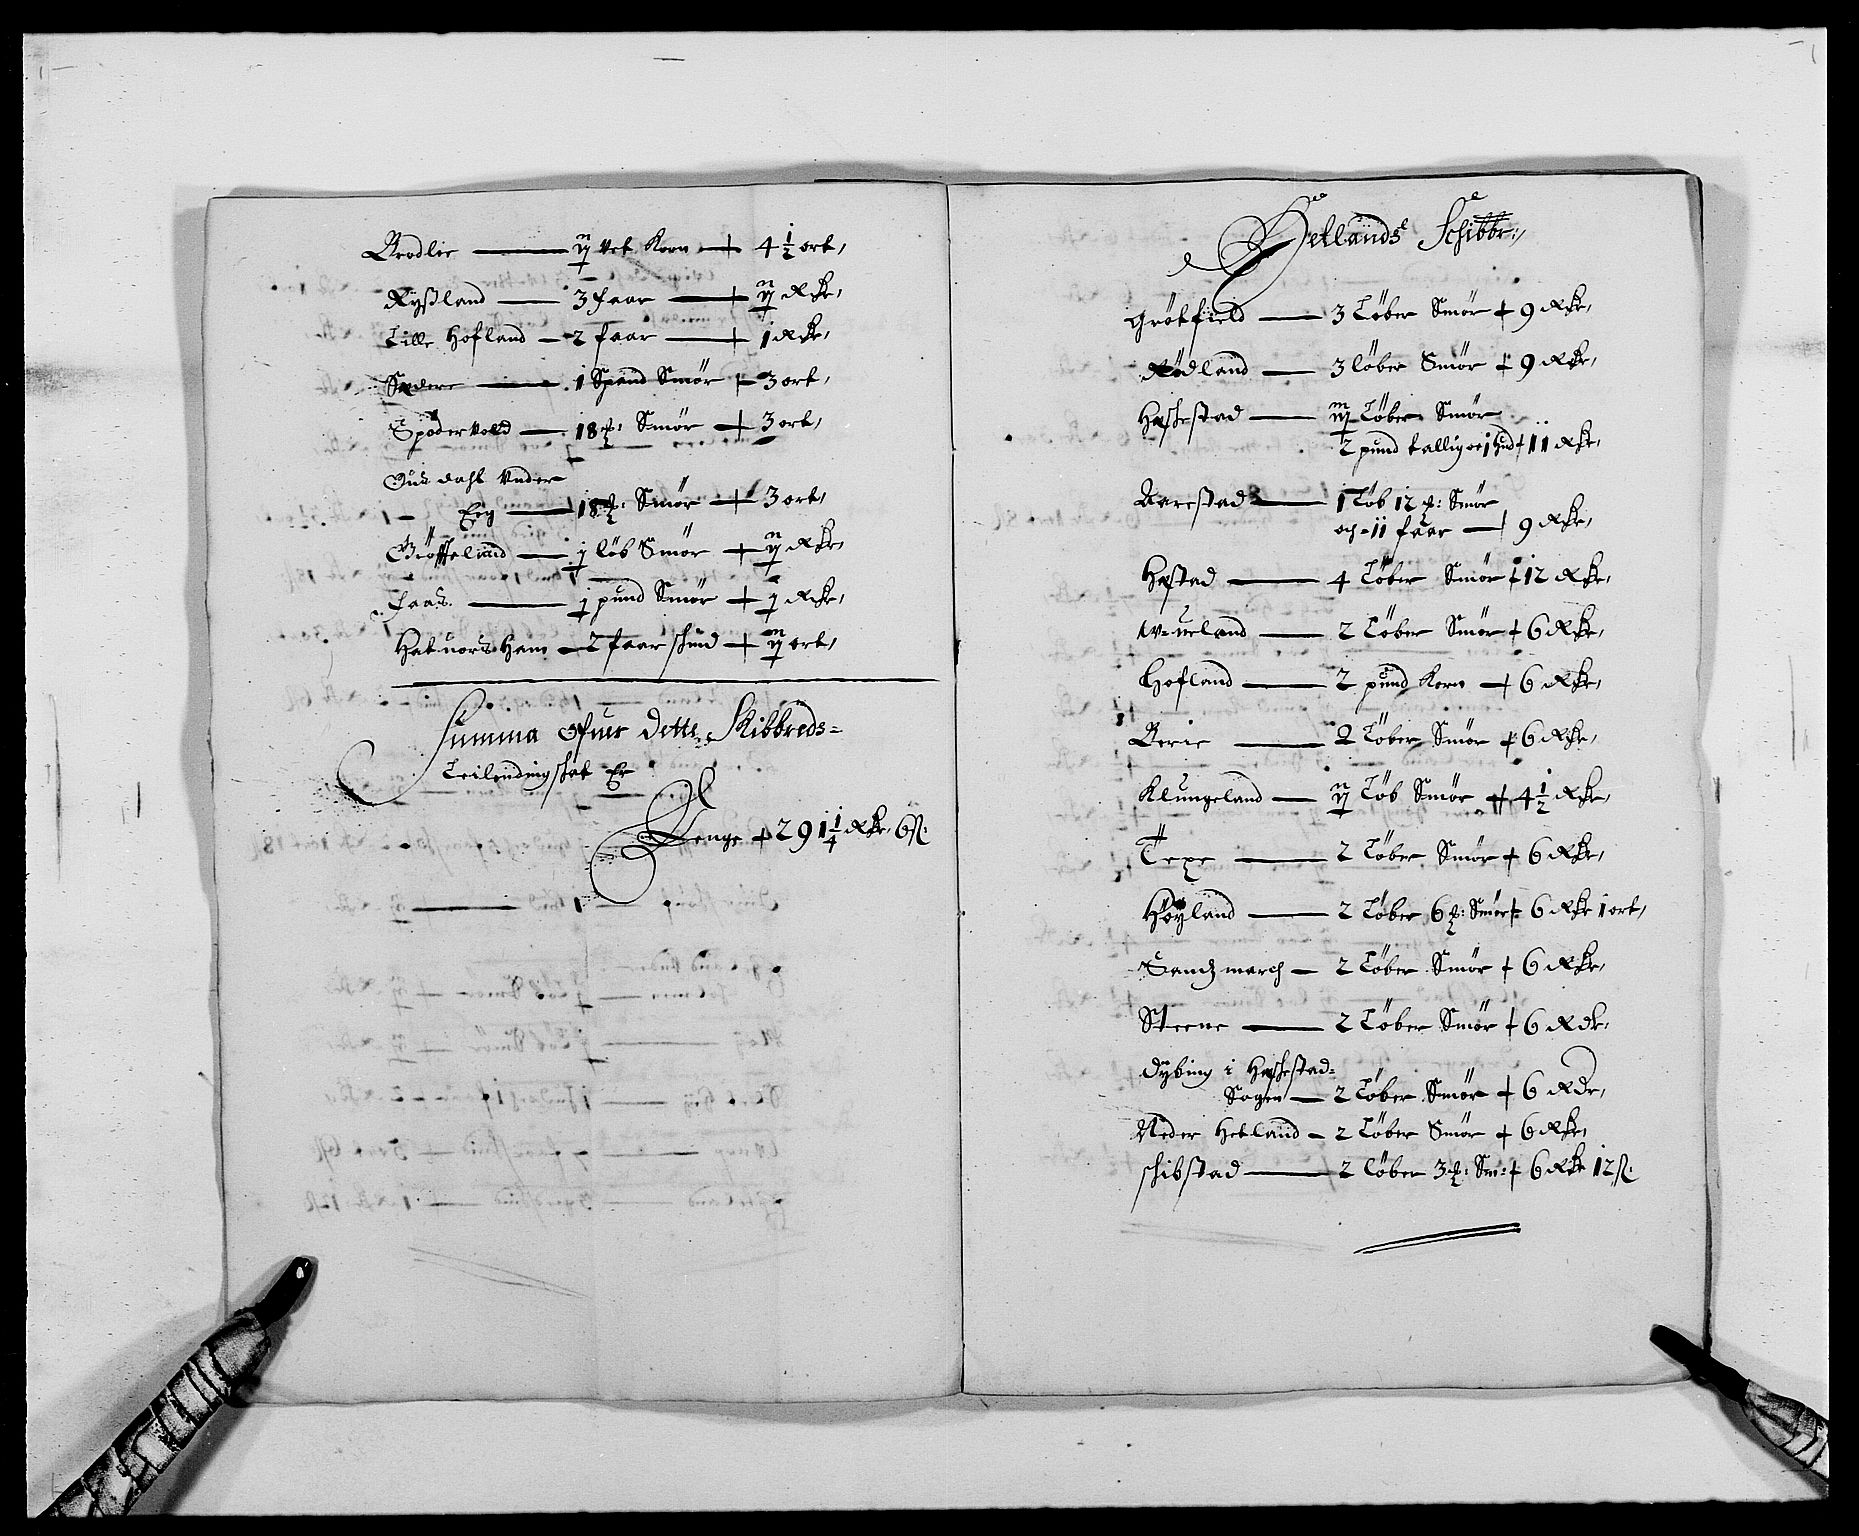 Brodlie — ij vet Korn + 4 1/2 ort,
Rÿsland — 3 faar + ij Rdr,
Lille Hofland — 2 faar + 1 Rdr,
Sædere — 1 Spand Smör + 3 ort,
Spödervold — 18 p: Smör + 3 ort,
dahl Vnder
Eeg — 18 p: Smör + 3 ort,
— j löb Smör + ij Rdr,
faas — j pund Smör + j Rdr,
Hatuors Ham — 2 faarskind + ij ort,
Summa ofuer dette Skibbreds=
Leilendingskat Er
Penge + 291 1/4 Rdr, 6 s:
Hetlands Schibbr:,
Grötfield — 3 Löber Smör + 9 Rdr,
Rödland — 3 löber Smör + 9 Rdr,
Heskestad — iij Löber Smör
2 pund tallig oc 1 hud + 11 Rdr,
Aarestad — 1 Löb 12 p: Smör
och 11 faar + 9 Rdr,
Hestad — 4 Löber Smör + 12 Rdr,
— 2 Löber Smör + 6 Rdr,
Hofland — 2 pund Korn + 6 Rdr,
Berie — 2 Löber Smör + 6 Rdr,
Klungeland — ij Löb Smör + 4 1/2 Rdr,
Texe — 2 Löber Smör + 6 Rdr,
Höÿland — 2 Löber 6 p: Smör + 6 Rdr 1 ort,
Sandzmarch — 2 Löber Smör + 6 Rdr,
Steene — 2 Löber Smör + 6 Rdr:
Dÿbing i Heskestad=
Sogen — 2 Löber Smör + 6 Rdr,
Neder Hetland — 2 Löber Smör + 6 Rdr,
schibstad — 2 löber 3 p: Sm: + 6 Rdr 12 s: